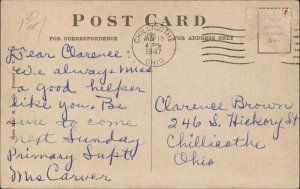 POST CARD
FOR CORRESPONDENCE
FOR ADDRESS ONLY
CHILLICOTHE
1947
OHIO
Dear Clarence
We always Miss
a good helper
like you. Be
sure to come
next Sunday
Primary Supt.
Mrs Carver
Clarence Brown
246 S. Hickory St
Chillicothe
Ohio